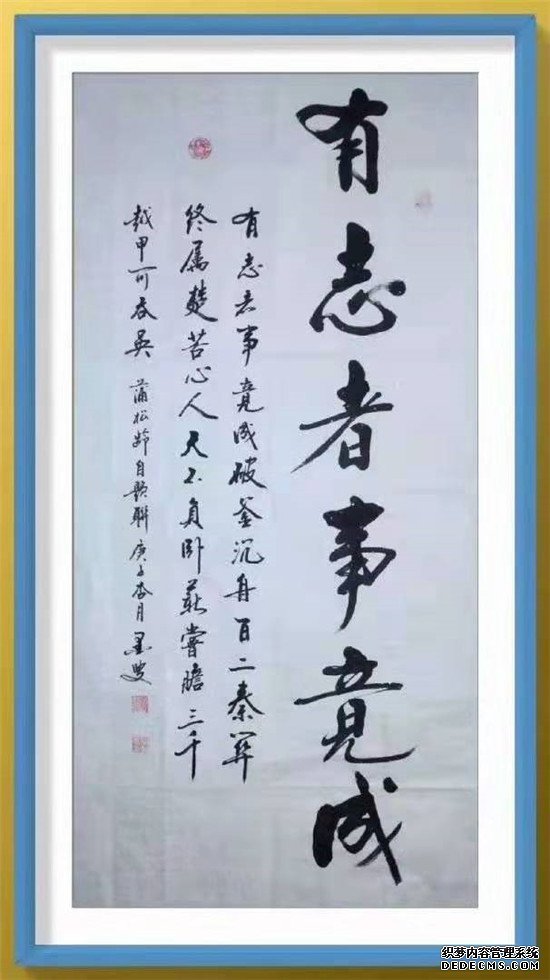 有志者事竟成
有志者事竟成破釜沉舟百二秦关
终属楚苦心人天不负卧薪嘗膽三千
越甲可吞吴 蒲松龄自勉联 庚子杏月 墨叟
织梦内容管理系统
DEDECMS.COM